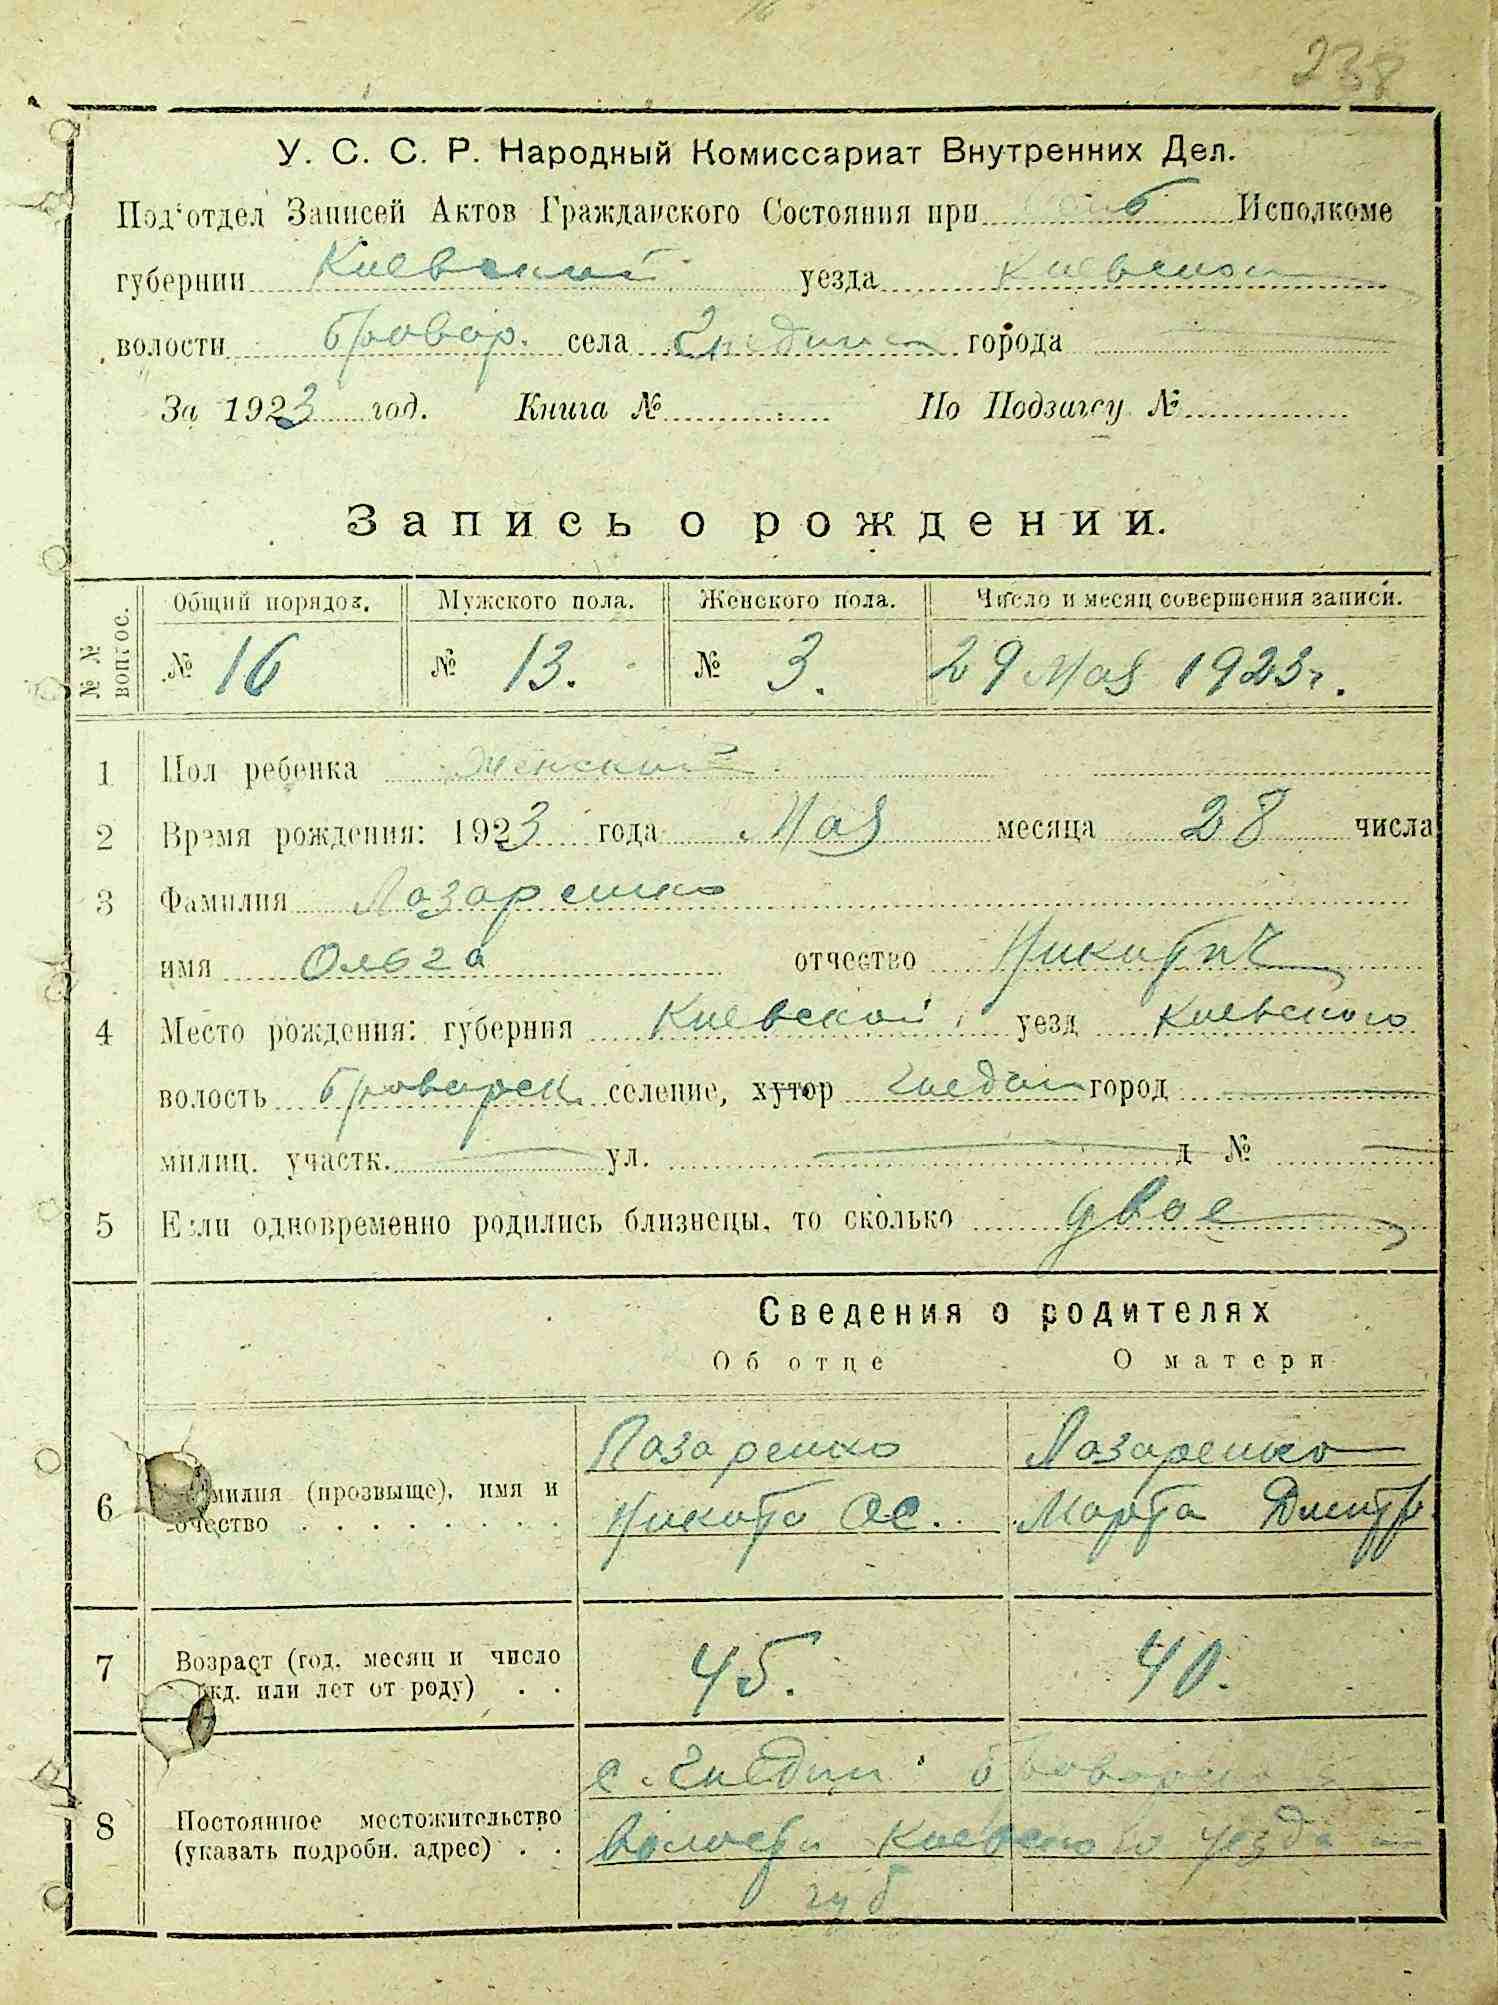 238
У. С. С. Р. Народный Комиссариат Внутренних Дел.
Под'отдел Записей Актов Гражданского Состояния при Исполкоме
губернии Киевской уезда Киевского
волости Бровар. села Гнедин города
За 1923 год. Книга № По Подзагсу №
Запись о рождении.
№ № вопрос. Общий порядок. Мужского пола. Женского пола. Число и месяц совершения записи.
№ 16 № 13. № 3. 29 Мая 1923 г.
1 Пол ребенка женский
2 Время рождения: 1923 года Мая месяца 28 числа
3 Фамилия Лазаренко
имя Ольга отчество Никитич
4 Место рождения: губерния Киевской уезд Киевского
волость Броварск. селение, хутор Гнедин город
милиц. участк. ул. д №
5 Если одновременно родились близнецы, то сколько двое
Сведения о родителях
Об отце О матери
Лазаренко Лазаренко
6 Фамилия (прозвыще), имя и
отчество Никита Ос. Марта Дмитр.
7 Возраст (год, месяц и число
рожд. или лет от роду) 45. 40.
с. Гнедин Броварской
8 Постоянное местожительство
(указать подробн. адрес) волости Киевского уезда и
губ